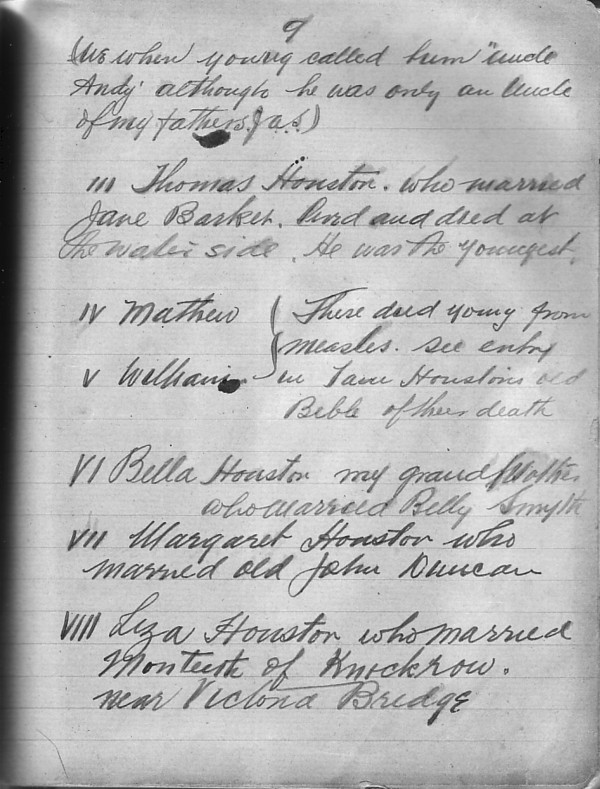 9
(We when young called him "uncle
Andy" although he was only an Uncle
of my fathers J.a.S.)
III Thomas Houston. who married
Jane Barket. lived and died at
the water side. He was the youngest.
IV Mathew { These died young from
measles. see entry
V William in Jane Houstons old
Bible of their death
VI Bella Houston my grand Mother
who married Billy Smyth
VII Margaret Houston who
married old John Duncan
VIII Liza Houston who married
Monteith of Knockrow.
near Victoria Bridge